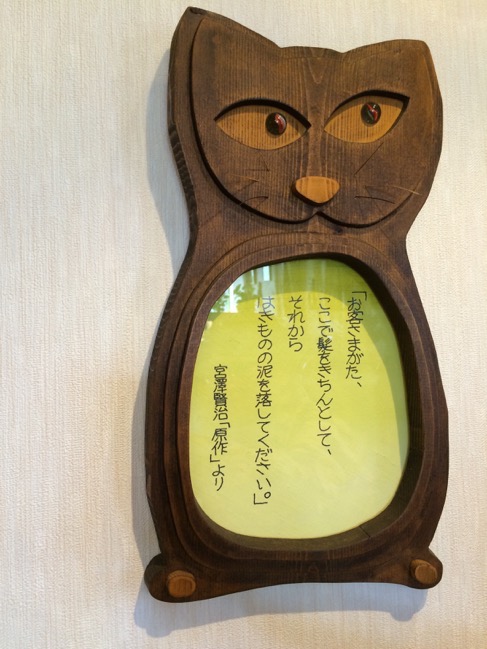 「お客さまがた、
ここで髪をきちんとして、
それから
はきものの泥を落してください。」
宮澤賢治「原作」より